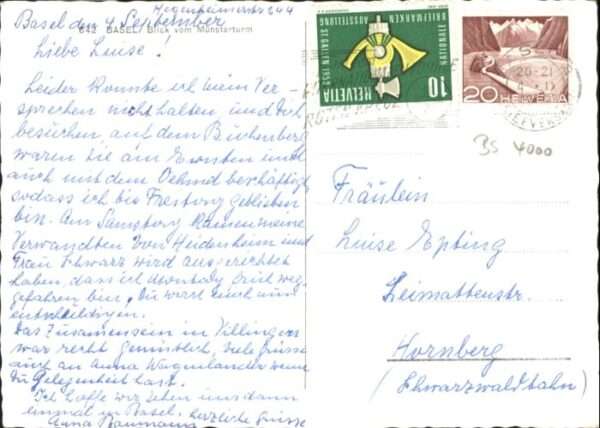 Hegenheimerstr 244
Basel den 4. September
642 BASEL / Blick vom Münsterturm
Liebe Luise!
Leider konnte ich mein Ver-
sprechen nicht halten, und Dich
besuchen auf dem Büchenberg
waren Sie am Ernten und
auch mit dem Oehmd beschäftigt,
sodass ich bis Freitag geblieben
bin. Am Samstag kamen meine
Verwandten von Heidenheim und
Frau Schwarz wird ausgerichtet
haben, dass ich Montag früh weg-
gefahren bin, Du wirst mich nun
entschuldigen.
Das Zusammensein in Villingen
war recht gemütlich, viele Grüsse
auch an Anna Wagenländer wenn
Du Gelegenheit hast.
Ich hoffe wir sehen uns dann
einmal in Basel, herzliche Grüsse
Anna Baumann
NATIONALE
BRIEFMARKEN-
AUSSTELLUNG
ST. GALLEN 1959
HELVETIA
10
20 HELVETIA
20-21
BS 4000
Fräulein
Luise Epting
Leimattenstr.
Hornberg
(Schwarzwaldbahn)